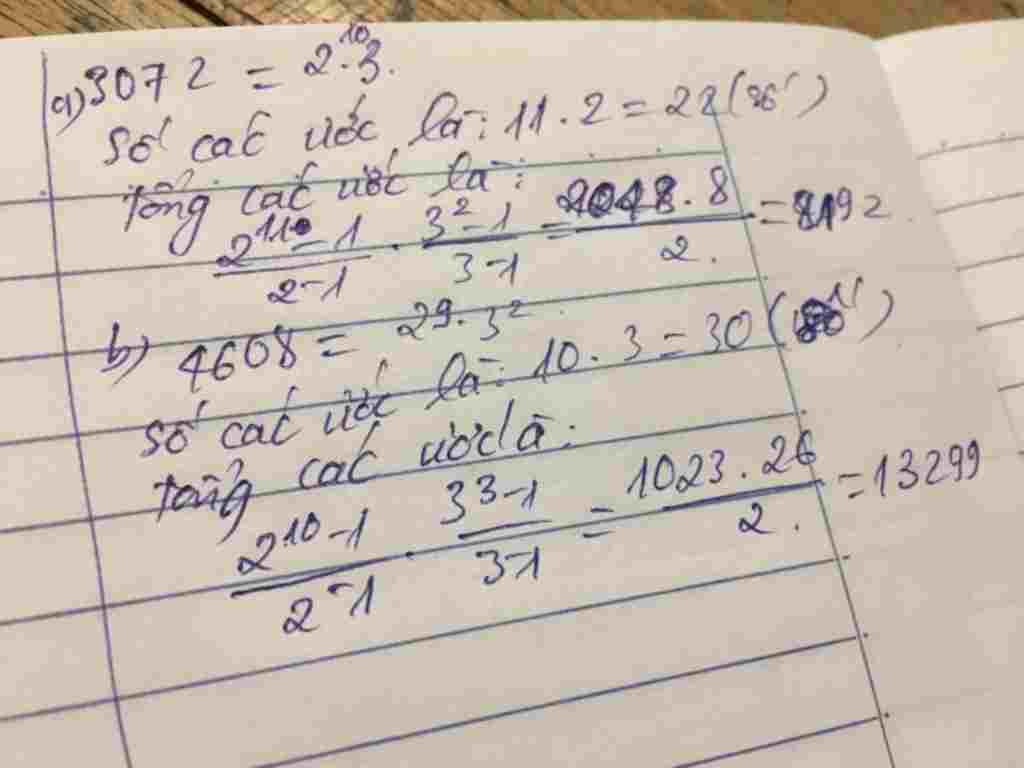 a) 3072 = 2^10.3.
Số các ước là: 11.2 = 22 (số)
Tổng các ước là:
(2^11 - 1)/(2-1) . (3^2 - 1)/(3-1) = (2048.8)/2. = 8192
b) 4608 = 2^9.3^2
Số các ước là: 10.3 = 30 (số)
Tổng các ước là:
(2^10 - 1)/(2-1) . (3^3 - 1)/(3-1) = (1023.26)/2. = 13299